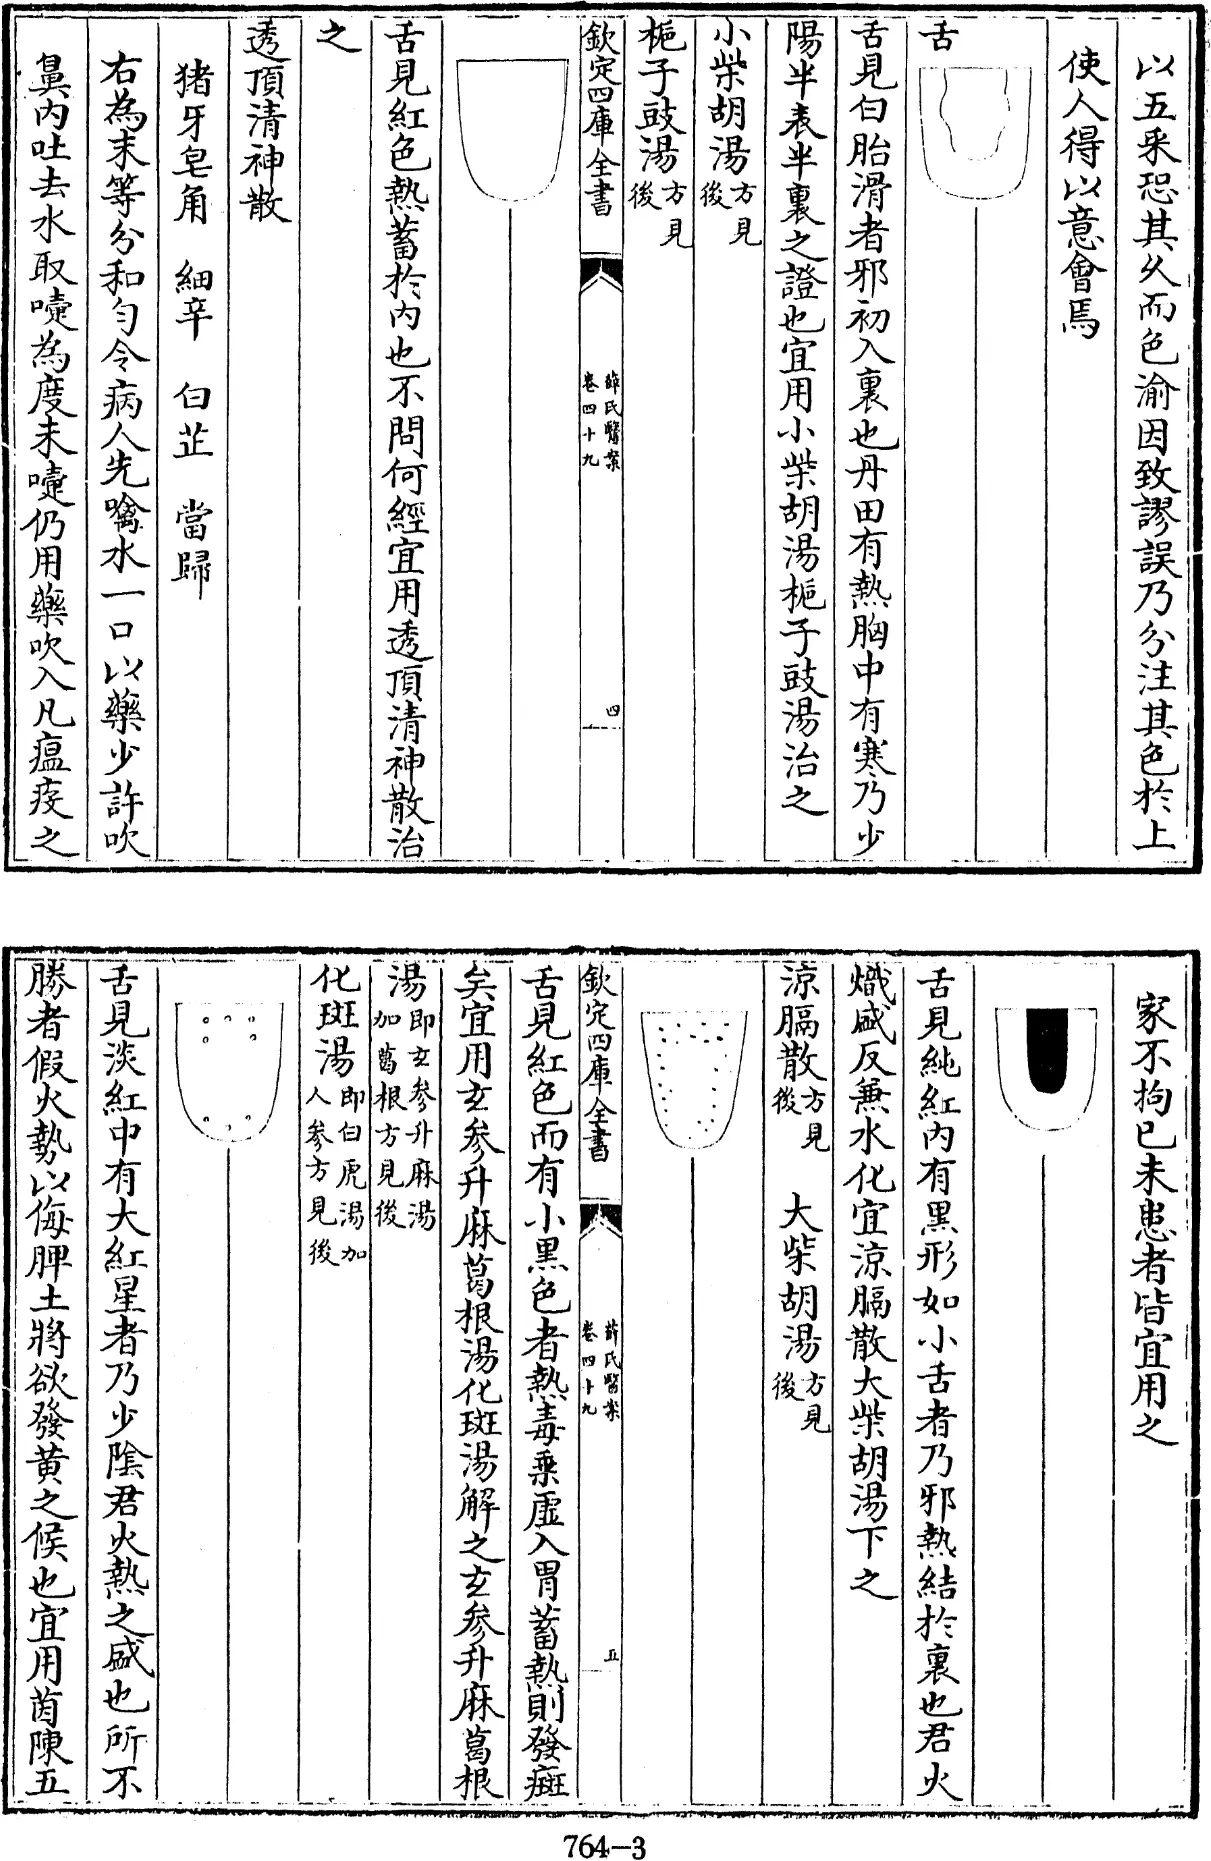 以五采恐其久而色渝因致謬誤乃分注其色於上
使人得以意會焉
舌
舌見白胎滑者邪初入裏也丹田有熱胸中有寒乃少
陽半表半裏之證也宜用小柴胡湯梔子豉湯治之
小柴胡湯方見後
梔子豉湯方見後
欽定四庫全書 薛氏醫案卷四十九 四
舌見紅色熱蓄於内也不問何經宜用透頂清神散治
之
透頂清神散
猪牙皂角 細辛 白芷 當歸
右為末等分和勻令病人先噙水一口以藥少許吹
鼻内吐去水取嚏為度未嚏仍用藥吹入凡瘟疫之
家不拘已未患者皆宜用之
舌見純紅内有黑形如小舌者乃邪熱結於裏也君火
熾盛反兼水化宜涼膈散大柴胡湯下之
涼膈散方見後 大柴胡湯方見後
欽定四庫全書 薛氏醫案卷四十九 五
舌見紅色而有小黑色者熱毒乗虛入胃蓄熱則發斑
矣宜用玄參升麻葛根湯化斑湯解之玄參升麻葛根
湯即玄參升麻湯加葛根方見後
化斑湯即白虎湯加人參方見後
舌見淡紅中有大紅星者乃少陰君火熱之盛也所不
勝者假火勢以侮脾土將欲發黄之候也宜用茵陳五
764-3